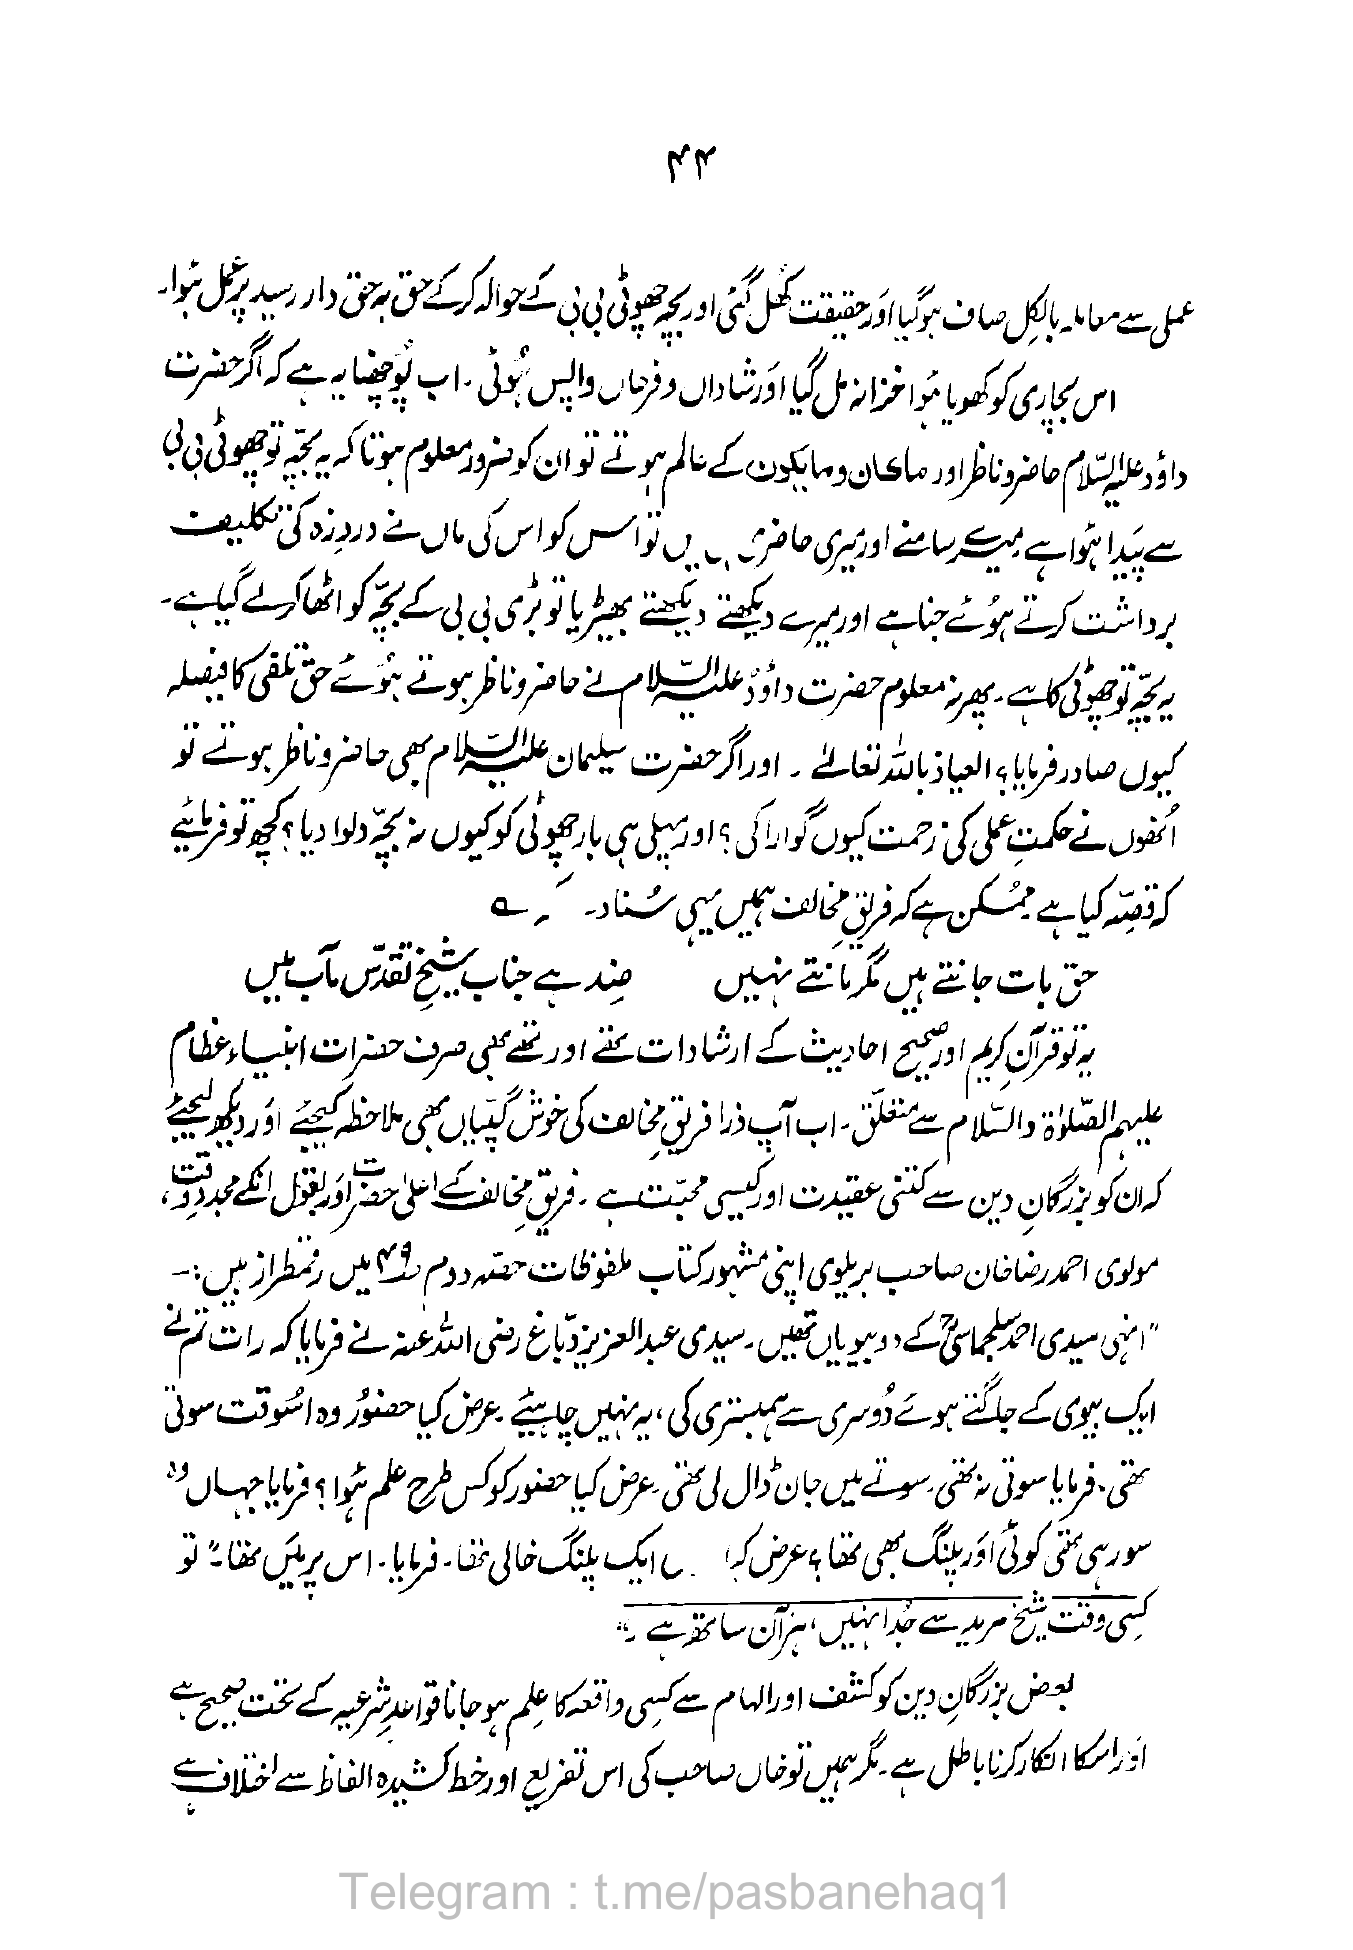 ۴۴
عملی سے معاملہ بالکل صاف ہوگیا اور حقیقت کھل گئی اور بچہ چھوٹی بی بی کے حوالہ کرکے حق بہ حق دار رسید پر عمل ہوا۔
اس بچاری کو کھویا ہوا خزانہ مل گیا اور شاداں و فرحاں واپس ہوئی۔ اب پوچھنا یہ ہے کہ اگر حضرت
داؤد علیہ السلام حاضر و ناظر اور ماکان و مایکون کے عالم ہوتے تو ان کو ضرور معلوم ہوتا کہ یہ بچہ تو چھوٹی بی بی
سے پیدا ہوا ہے میرے سامنے اور میری حاضری میں تو اس کو اس کی ماں نے دردِ زہ کی تکلیف
برداشت کرتے ہوئے جنا ہے اور میرے دیکھتے دیکھتے بھیڑیا تو بڑی بی بی کے بچہ کو اٹھا کر لے گیا ہے۔
یہ بچہ تو چھوٹی کا ہے۔ پھر نہ معلوم حضرت داؤد علیہ السلام نے حاضر و ناظر ہوتے ہوئے حق تلفی کا فیصلہ
کیوں صادر فرمایا؟ العیاذ باللہ تعالیٰ۔ اور اگر حضرت سلیمان علیہ السلام بھی حاضر و ناظر ہوتے تو
انھوں نے حکمتِ عملی کی زحمت کیوں گوارا کی؟ اور پہلی ہی بار چھوٹی کو کیوں نہ بچہ دلوا دیا؟ کچھ تو فرمائیے
کہ قصہ کیا ہے ممکن ہے کہ فریقِ مخالف ہمیں یہی سُنا د۔ ے
حق بات جانتے ہیں مگر مانتے نہیں ضد ہے جناب شیخِ تقدّس مآب میں
یہ تو قرآنِ کریم اور صحیح احادیث کے ارشادات تھے اور تھے بھی صرف حضرات انبیاء عظام
علیہم الصلوٰۃ والسلام سے متعلق۔ اب آپ ذرا فریقِ مخالف کی خوش گپیاں بھی ملاحظہ کیجئے اور دیکھ لیجئے
کہ ان کو بزرگانِ دین سے کتنی عقیدت اور کیسی محبت ہے۔ فریقِ مخالف کے اعلیٰ حضرت اور بقول انکے مجدد وقت،
مولوی احمد رضا خان صاحب بریلوی اپنی مشہور کتاب ملفوظات حصہ دوم ص۴۹ میں رقمطراز ہیں:۔
"انہی سیدی احمد سلجماسیؒ کے دو بیویاں تھیں۔ سیدی عبدالعزیز دبّاغ رضی اللہ عنہ نے فرمایا کہ رات تم نے
ایک بیوی کے جاگتے ہوئے دُوسری سے ہمبستری کی، یہ نہیں چاہیئے۔ عرض کیا حضور وہ اسوقت سوتی
تھی۔ فرمایا سوتی نہ تھی۔ سوتے میں جان ڈال لی تھی۔ عرض کیا حضور کو کس طرح علم ہوا؟ فرمایا جہاں وہ
سو رہی تھی کوئی اور پلنگ بھی تھا؟ عرض کہا ں ایک پلنگ خالی تھا۔ فرمایا۔ اس پر میں تھا۔" تو
کسی وقت شیخ مرید سے جُدا نہیں، ہر آن ساتھ ہے۔"
بعض بزرگانِ دین کو کشف اور الہام سے کسی واقعہ کا علم ہو جانا قواعدِ شرعیہ کے تحت صحیح ہے
اور اسکا انکار کرنا باطل ہے۔ مگر ہمیں تو خاں صاحب کی اس تفریع اور خط کشیدہ الفاظ سے اختلاف ہے
Telegram : t.me/pasbanehaq1